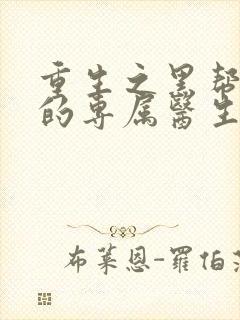 重生之黑帮
的专属医生
布莱恩-罗伯